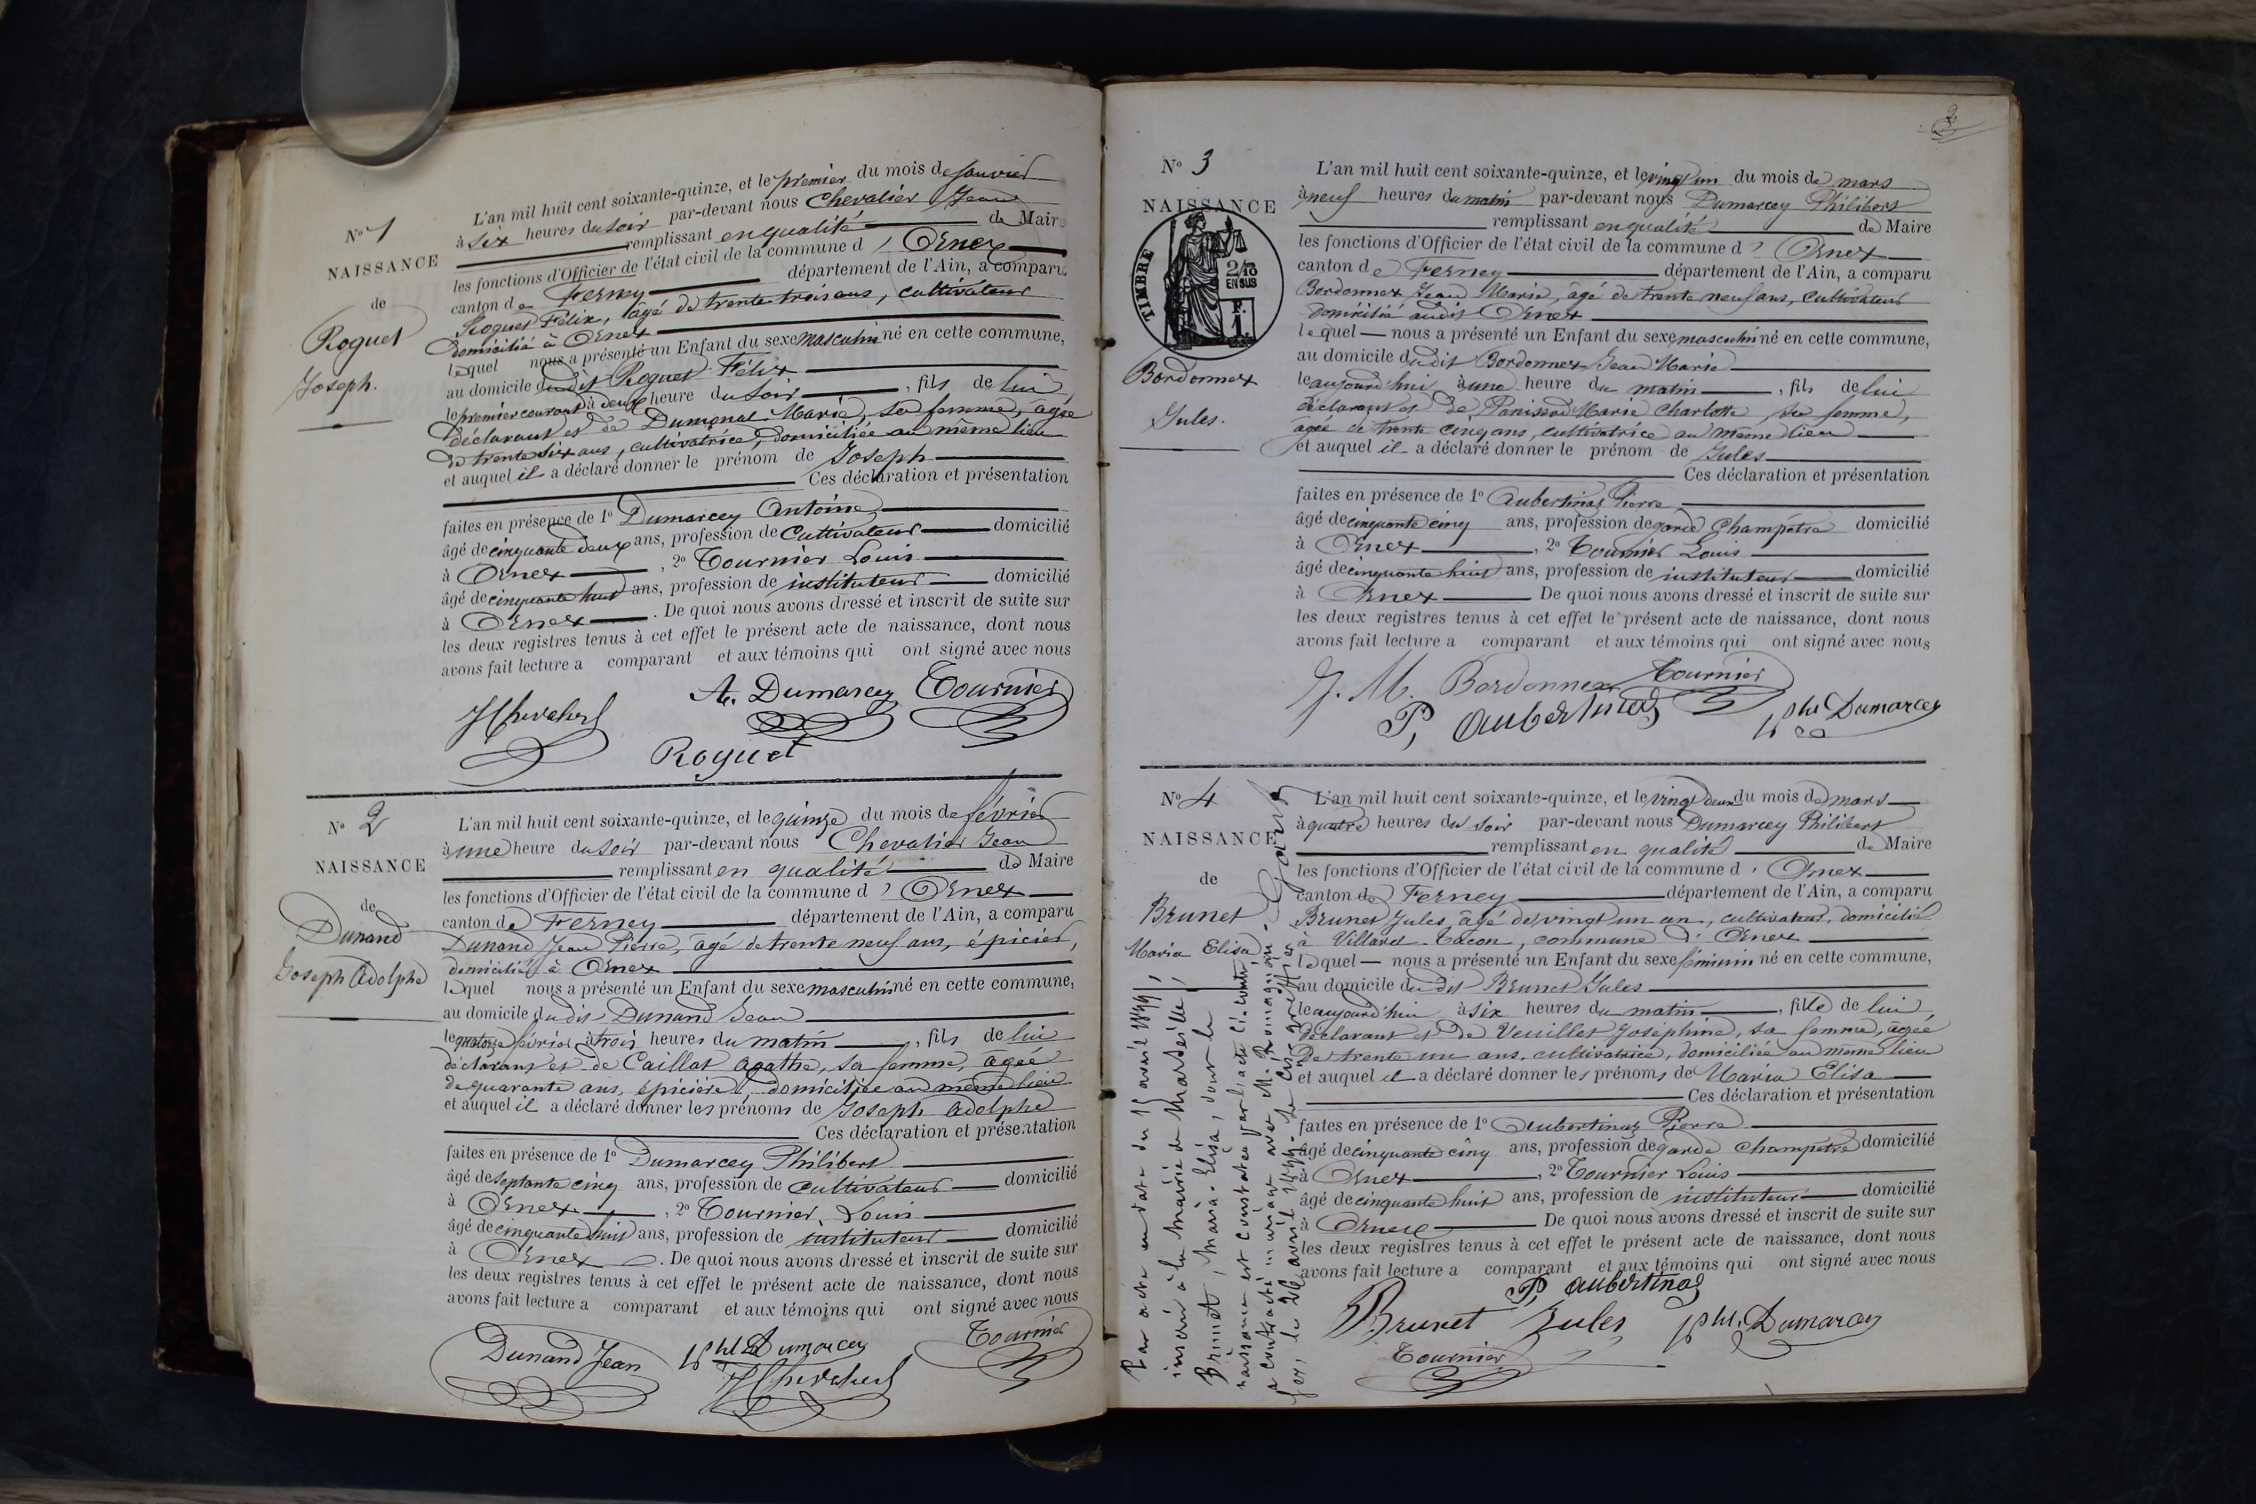 No 1
NAISSANCE
de
Roguet
Joseph.
L'an mil huit cent soixante-quinze, et le premier du mois de janvier
à six heures du soir par-devant nous Chevalier Jean
remplissant en qualité de Maire
les fonctions d'Officier de l'état civil de la commune d' Ornex
canton de Ferney département de l'Ain, a comparu
Roguet Félix, âgé de trente trois ans, cultivateur
domicilié à Ornex
lequel nous a présenté un Enfant du sexe masculin né en cette commune,
au domicile dudit Roguet Félix
le premier courant à deux heure du soir , fils de lui
déclarant et de Dumonal Marie, sa femme, âgée
de trente six ans, cultivatrice, domiciliée au même lieu
et auquel il a déclaré donner le prénom de Joseph
Ces déclaration et présentation
faites en présence de 1o Dumarcey Antoine
âgé de cinquante deux ans, profession de cultivateur domicilié
à Ornex , 2o Tournier Louis
âgé de cinquante huit ans, profession de instituteur domicilié
à Ornex . De quoi nous avons dressé et inscrit de suite sur
les deux registres tenus à cet effet le présent acte de naissance, dont nous
avons fait lecture a comparant et aux témoins qui ont signé avec nous
A. Dumarcey Tournier
J Chevalier
Roguet
No 2
NAISSANCE
de
Dunand
Joseph Adolphe
L'an mil huit cent soixante-quinze, et le quinze du mois de février
à une heure du soir par-devant nous Chevalier Jean
remplissant en qualité de Maire
les fonctions d'Officier de l'état civil de la commune d' Ornex
canton de Ferney département de l'Ain, a comparu
Dunand Jean Pierre, âgé de trente neuf ans, épicier,
domicilié à Ornex
lequel nous a présenté un Enfant du sexe masculin né en cette commune,
au domicile dudit Dunand Jean
le quatorze février à trois heures du matin , fils de lui
déclarant et de Caillat Agathe, sa femme, âgée
de quarante ans, épicière, domiciliée au même lieu
et auquel il a déclaré donner les prénoms de Joseph Adolphe
Ces déclaration et présentation
faites en présence de 1o Dumarcey Philibert
âgé de septante cinq ans, profession de cultivateur domicilié
à Ornex , 2o Tournier Louis
âgé de cinquante huit ans, profession de instituteur domicilié
à Ornex . De quoi nous avons dressé et inscrit de suite sur
les deux registres tenus à cet effet le présent acte de naissance, dont nous
avons fait lecture a comparant et aux témoins qui ont signé avec nous
Dunand Jean Phl Dumarcey Tournier
J Chevalier
No 3
NAISSANCE
TIMBRE
2/10
EN SUS
F.
1.
Bordonnex
Jules.
L'an mil huit cent soixante-quinze, et le vingt un du mois de mars
à neuf heures du matin par-devant nous Dumarcey Philibert
remplissant en qualité de Maire
les fonctions d'Officier de l'état civil de la commune d' Ornex
canton de Ferney département de l'Ain, a comparu
Bordonnex Jean Marie, âgé de trente neuf ans, cultivateur
domicilié audit Ornex
lequel nous a présenté un Enfant du sexe masculin né en cette commune,
au domicile dudit Bordonnex Jean Marie
le aujourd'hui à une heure du matin , fils de lui
déclarant et de Panissod Marie Charlotte, sa femme,
âgée de trente cinq ans, cultivatrice au même lieu
et auquel il a déclaré donner le prénom de Jules
Ces déclaration et présentation
faites en présence de 1o Aubertinaz Pierre
âgé de cinquante cinq ans, profession de garde champêtre domicilié
à Ornex , 2o Tournier Louis
âgé de cinquante huit ans, profession de instituteur domicilié
à Ornex De quoi nous avons dressé et inscrit de suite sur
les deux registres tenus à cet effet le présent acte de naissance, dont nous
avons fait lecture a comparant et aux témoins qui ont signé avec nous
J. M. Bordonnex Tournier
P, Aubertinaz Phl Dumarcey
No 4
NAISSANCE
de
Brunet
Maria Elisa
L'an mil huit cent soixante-quinze, et le vingt deux du mois de mars
à quatre heures du soir par-devant nous Dumarcey Philibert
remplissant en qualité de Maire
les fonctions d'Officier de l'état civil de la commune d' Ornex
canton de Ferney département de l'Ain, a comparu
Brunet Jules, âgé de vingt un an, cultivateur, domicilié
à Villard Tacon, commune d'Ornex
lequel nous a présenté un Enfant du sexe féminin né en cette commune,
au domicile dudit Brunet Jules
le aujourd'hui à six heures du matin , fille de lui,
déclarant et de Veuillet Joséphine, sa femme, âgée
de trente un ans, cultivatrice, domiciliée au même lieu
et auquel il a déclaré donner les prénoms de Maria Elisa
Ces déclaration et présentation
faites en présence de 1o Aubertinaz Pierre
âgé de cinquante cinq ans, profession de garde champêtre domicilié
à Ornex , 2o Tournier Louis
âgé de cinquante huit ans, profession de instituteur domicilié
à Ornex De quoi nous avons dressé et inscrit de suite sur
les deux registres tenus à cet effet le présent acte de naissance, dont nous
avons fait lecture a comparant et aux témoins qui ont signé avec nous
P, Aubertinaz
Brunet Jules Phl, Dumarcey
Tournier
Par acte en date du avril 1899,
inscrit à la Mairie de Marseille,
Brunet, Maria-Elisa, dont la
naissance est constatée par l'acte ci-contre,
a contracté mariage avec M. Romagnan
Gex, le 26 avril 1899. Le greffier